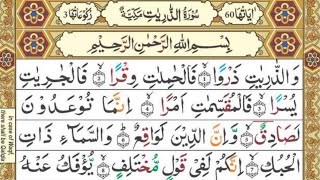 اٰيَاتُهَا 60 سُوْرَةُ الذّٰرِيٰتِ مَكِّيَّةٌ رُكُوْعَاتُهَا 3
بِسْمِ اللّٰهِ الرَّحْمٰنِ الرَّحِيْمِ
وَالذّٰرِيٰتِ ذَرْوًا ۙ﴿۱﴾ فَالْحٰمِلٰتِ وِقْرًا ۙ﴿۲﴾ فَالْجٰرِيٰتِ
يُسْرًا ۙ﴿۳﴾ فَالْمُقَسِّمٰتِ اَمْرًا ۙ﴿۴﴾ اِنَّمَا تُوْعَدُوْنَ
لَصَادِقٌ ۙ﴿۵﴾ وَّاِنَّ الدِّيْنَ لَوَاقِعٌ ؕ﴿۶﴾ وَالسَّمَآءِ ذَاتِ
الْحُبُكِ ۙ﴿۷﴾ اِنَّكُمْ لَفِيْ قَوْلٍ مُّخْتَلِفٍ ۙ﴿۸﴾ يُّؤْفَكُ عَنْهُ